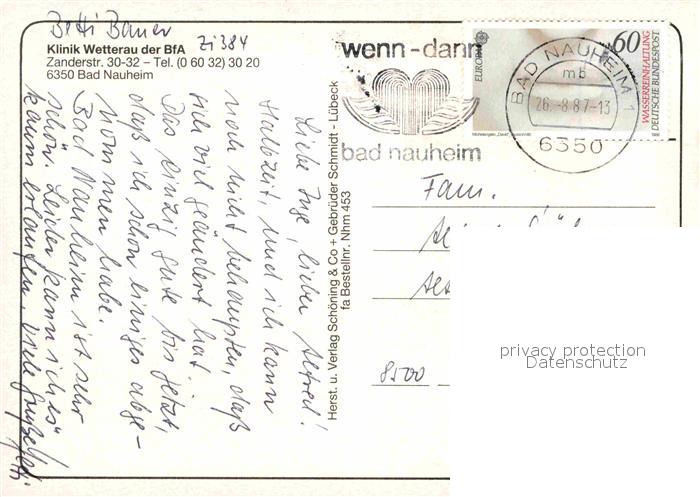 Betti Bauer
Zi 384
Klinik Wetterau der BfA
Zanderstr. 30-32 – Tel. (0 60 32) 30 20
6350 Bad Nauheim
wenn-dann
bad nauheim
EUROPA
60
WASSERREINHALTUNG
DEUTSCHE BUNDESPOST
BAD NAUHEIM 1
mb
26.-8.87-13
6350
Liebe Inge, lieber Alfred!
Halbzeit, und ich kann
noch nicht behaupten, daß
sich viel geändert hat.
Das einzig gute bis jetzt,
daß ich schon einiges abge-
nommen habe.
Bad Nauheim ist sehr
schön. Leider kann ich es
kaum erlaufen. Viele Grüße
Herst. u. Verlag Schöning & Co + Gebrüder Schmidt - Lübeck
fa Bestellnr. Nhm 453
Fam.
8500
privacy protection
Datenschutz